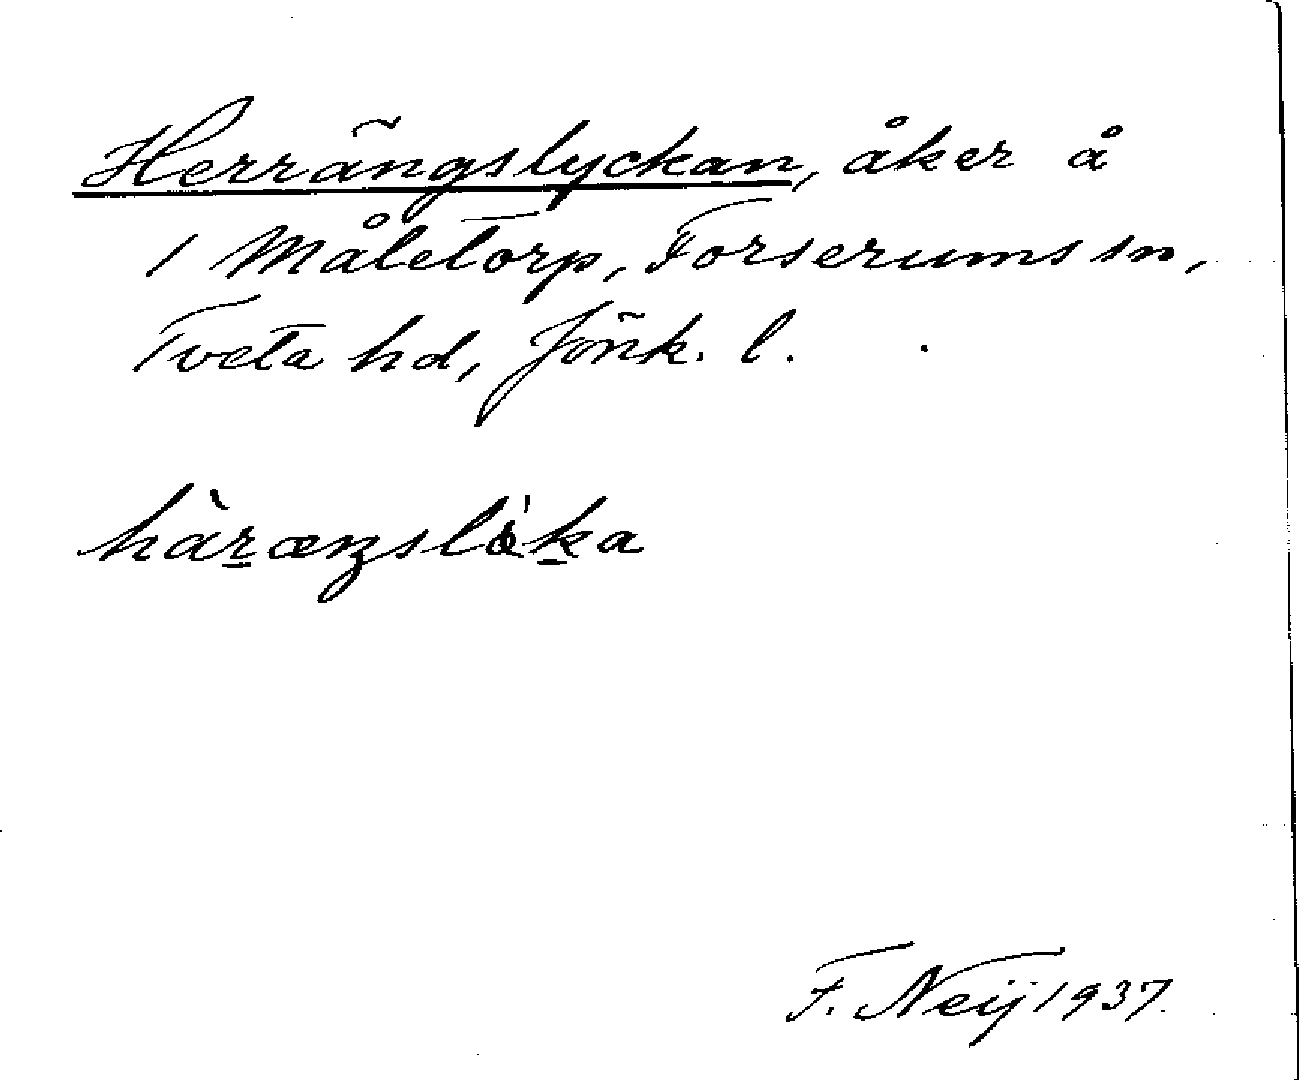 Herrängslyckan, åker å
1 Måletorp, Forserums sn,
Tveta hd, Jönk. l.
hàr̲æŋslök̲a
F. Neij 1937.